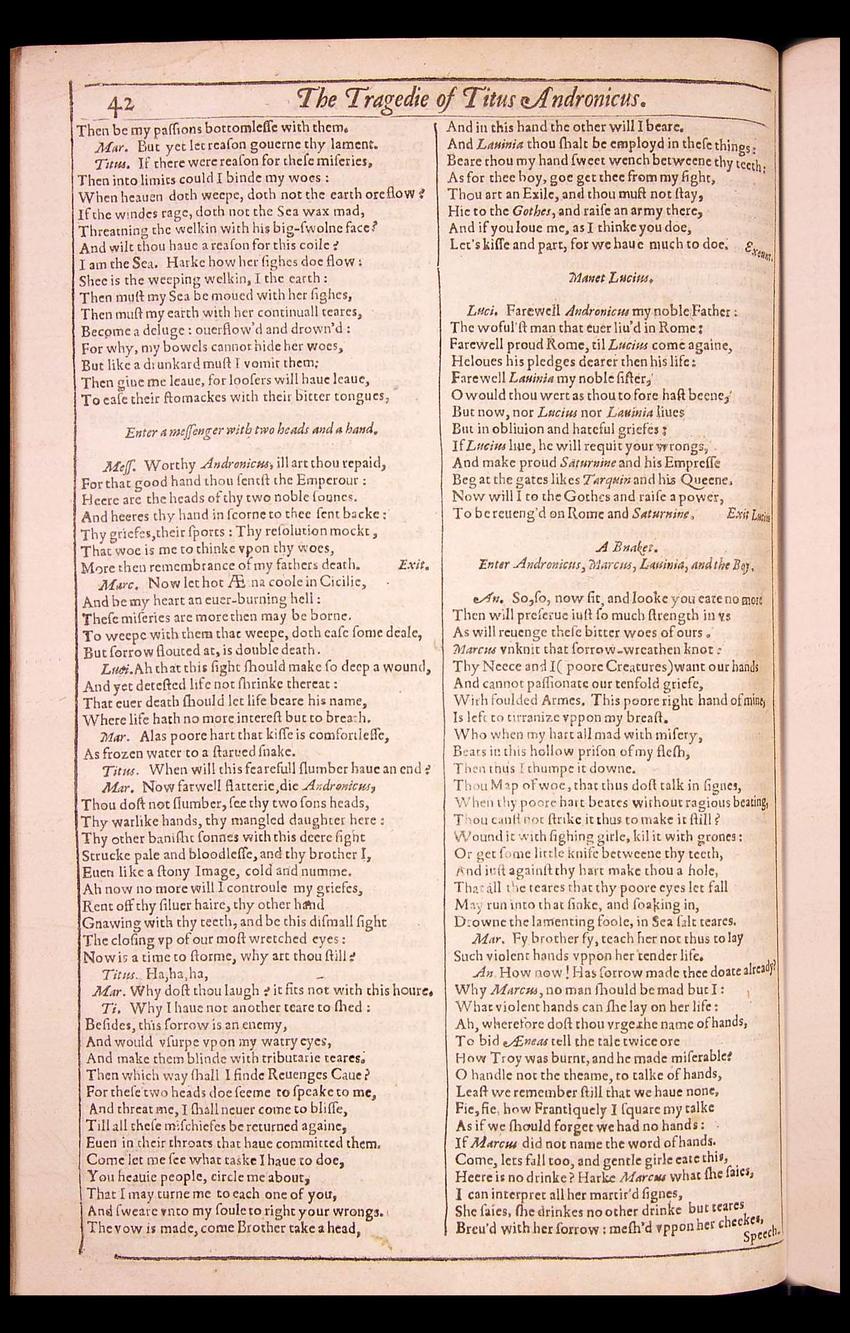 42
The Tragedie of Titus Andronicus.
Then be my passions bottomlesse with them.
Mar. But yet let reason gouerne thy lament.
Titus. If there were reason for these miseries,
Then into limits could I binde my woes:
When heauen doth weepe, doth not the earth oreflow?
If the windes rage, doth not the Sea wax mad,
Threatning the welkin with his big-swolne face?
And wilt thou haue a reason for this coile?
I am the Sea. Harke how her sighes doe flow:
Shee is the weeping welkin, I the earth:
Then must my Sea be moued with her sighes,
Then must my earth with her continuall teares,
Become a deluge: ouerflow'd and drown'd:
For why, my bowels cannot hide her woes,
But like a drunkard must I vomit them:
Then giue me leaue, for loosers will haue leaue,
To ease their stomackes with their bitter tongues,
Enter a messenger with two heads and a hand.
Mess. Worthy Andronicus, ill art thou repaid,
For that good hand thou sentst the Emperour:
Heere are the heads of thy two noble sonnes.
And heeres thy hand in scorne to thee sent backe:
Thy griefes, their sports: Thy resolution mockt,
That woe is me to thinke vpon thy woes,
More then remembrance of my fathers death. Exit.
Marc. Now let hot Æ na coole in Cicilie,
And be my heart an euer-burning hell:
These miseries are more then may be borne.
To weepe with them that weepe, doth ease some deale,
But sorrow flouted at, is double death.
Luci. Ah that this sight should make so deep a wound,
And yet detested life not shrinke thereat:
That euer death should let life beare his name,
Where life hath no more interest but to breath.
Mar. Alas poore hart that kisse is comfortlesse,
As frozen water to a starued snake.
Titus. When will this fearefull slumber haue an end?
Mar. Now farwell flatterie, die Andronicus,
Thou dost not slumber, see thy two sons heads,
Thy warlike hands, thy mangled daughter here:
Thy other banisht sonnes with this deere sight
Strucke pale and bloodlesse, and thy brother I,
Euen like a stony Image, cold and numme.
Ah now no more will I controule my griefes,
Rent off thy siluer haire, thy other hand
Gnawing with thy teeth, and be this dismall sight
The closing vp of our most wretched eyes:
Now is a time to storme, why art thou still?
Titus. Ha, ha, ha,
Mar. Why dost thou laugh? it fits not with this houre.
Ti. Why I haue not another teare to shed:
Besides, this sorrow is an enemy,
And would vsurpe vpon my watry eyes,
And make them blinde with tributarie teares.
Then which way shall I finde Reuenges Caue?
For these two heads doe seeme to speake to me,
And threat me, I shall neuer come to blisse,
Till all these mischiefes be returned againe,
Euen in their throats that haue committed them.
Come let me see what taske I haue to doe,
You heauie people, circle me about,
That I may turne me to each one of you,
And sweare vnto my soule to right your wrongs.
The vow is made, come Brother take a head,
And in this hand the other will I beare.
And Lauinia thou shalt be employd in these things:
Beare thou my hand sweet wench betweene thy teeth:
As for thee boy, goe get thee from my sight,
Thou art an Exile, and thou must not stay,
Hie to the Gothes, and raise an army there,
And if you loue me, as I thinke you doe,
Let's kisse and part, for we haue much to doe. Exeunt.
Manet Lucius.
Luci. Farewell Andronicus my noble Father:
The woful'st man that euer liu'd in Rome:
Farewell proud Rome, til Lucius come againe,
He loues his pledges dearer then his life:
Farewell Lauinia my noble sister,
O would thou wert as thou to fore hast beene,
But now, nor Lucius nor Lauinia liues
But in obliuion and hateful griefes:
If Lucius liue, he will requit your wrongs,
And make proud Saturnine and his Empresse
Beg at the gates likes Tarquin and his Queene.
Now will I to the Gothes and raise a power,
To be reueng'd on Rome and Saturnine. Exit Lucius
A Bnaket.
Enter Andronicus, Marcus, Lauinia, and the Boy.
An. So, so, now sit, and looke you eate no more
Then will preserue iust so much strength in vs
As will reuenge these bitter woes of ours.
Marcus vnknit that sorrow-wreathen knot:
Thy Neece and I (poore Creatures) want our hands
And cannot passionate our tenfold griefe,
With foulded Armes. This poore right hand of mine,
Is left to tirranize vppon my breast.
Who when my hart all mad with misery,
Beats in this hollow prison of my flesh,
Then thus I thumpe it downe.
Thou Map of woe, that thus dost talk in signes,
When thy poore hart beates without ragious beating,
Thou canst not strike it thus to make it still?
Wound it with sighing girle, kil it with grones:
Or get some little knife betweene thy teeth,
And iust against thy hart make thou a hole,
That all the teares that thy poore eyes let fall
May run into that sinke, and soaking in,
Drowne the lamenting foole, in Sea salt teares.
Mar. Fy brother fy, teach her not thus to lay
Such violent hands vppon her tender life.
An. How now! Has sorrow made thee doate already?
Why Marcus, no man should be mad but I:
What violent hands can she lay on her life:
Ah, wherefore dost thou vrge the name of hands,
To bid Æneas tell the tale twice ore
How Troy was burnt, and he made miserable?
O handle not the theame, to talke of hands,
Least we remember still that we haue none,
Fie, fie, how Frantiquely I square my talke
As if we should forget we had no hands:
If Marcus did not name the word of hands.
Come, lets fall too, and gentle girle eate this,
Heere is no drinke? Harke Marcus what she saies,
I can interpret all her martir'd signes,
She saies, she drinkes no other drinke but teares
Breu'd with her sorrow: mesh'd vppon her cheekes,
Speech.